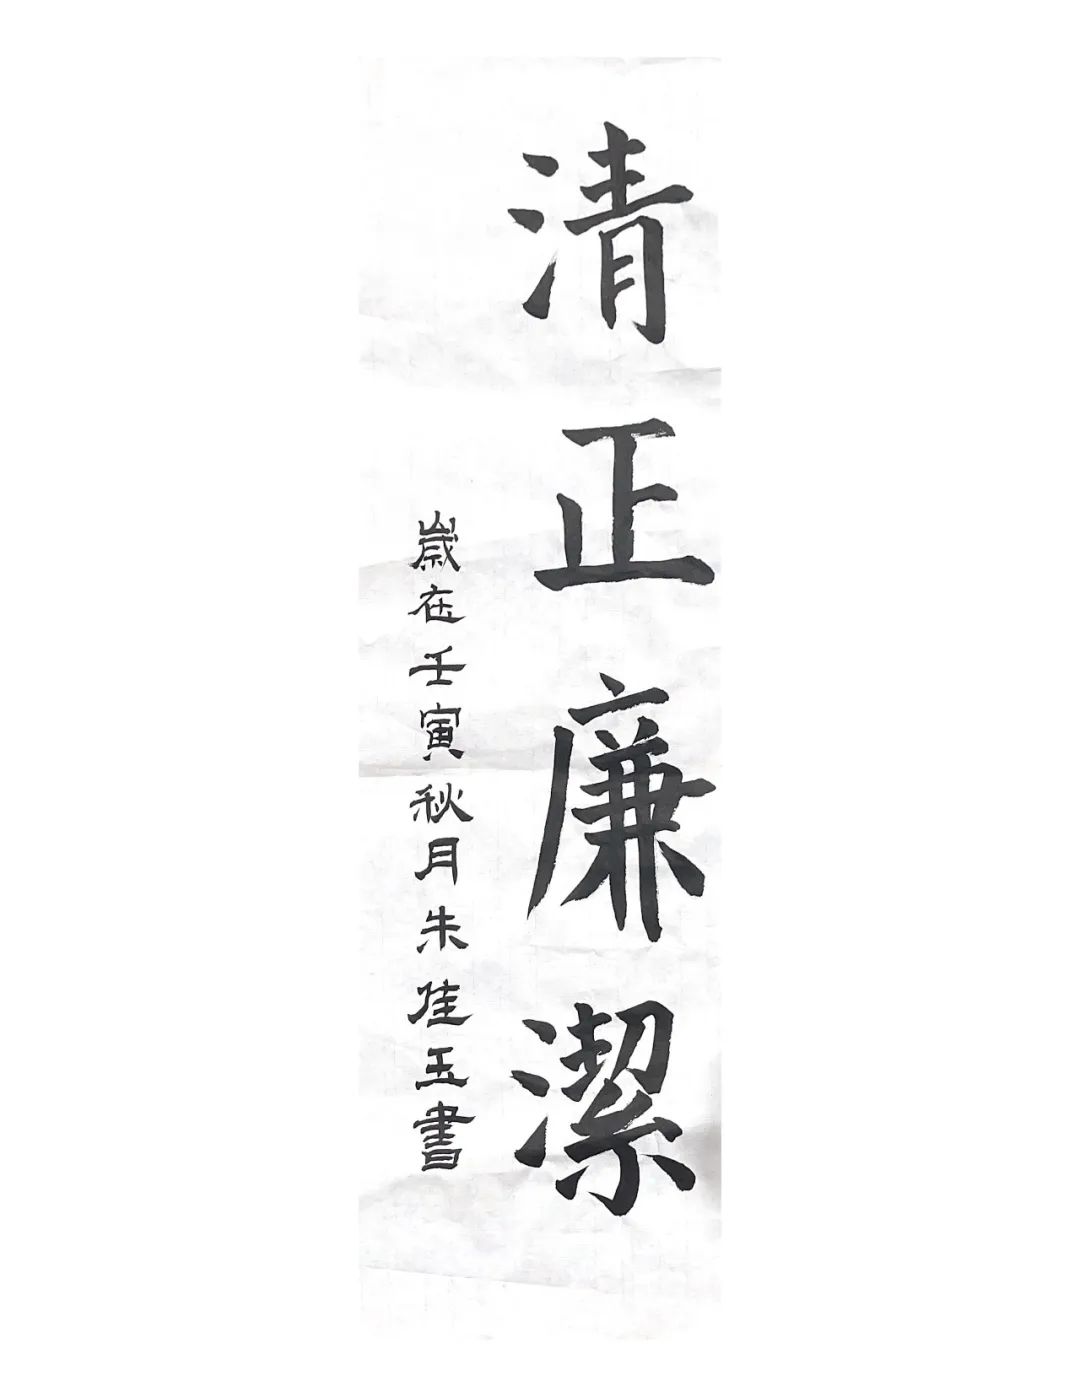 清正廉潔
歲在壬寅秋月朱佳玉書